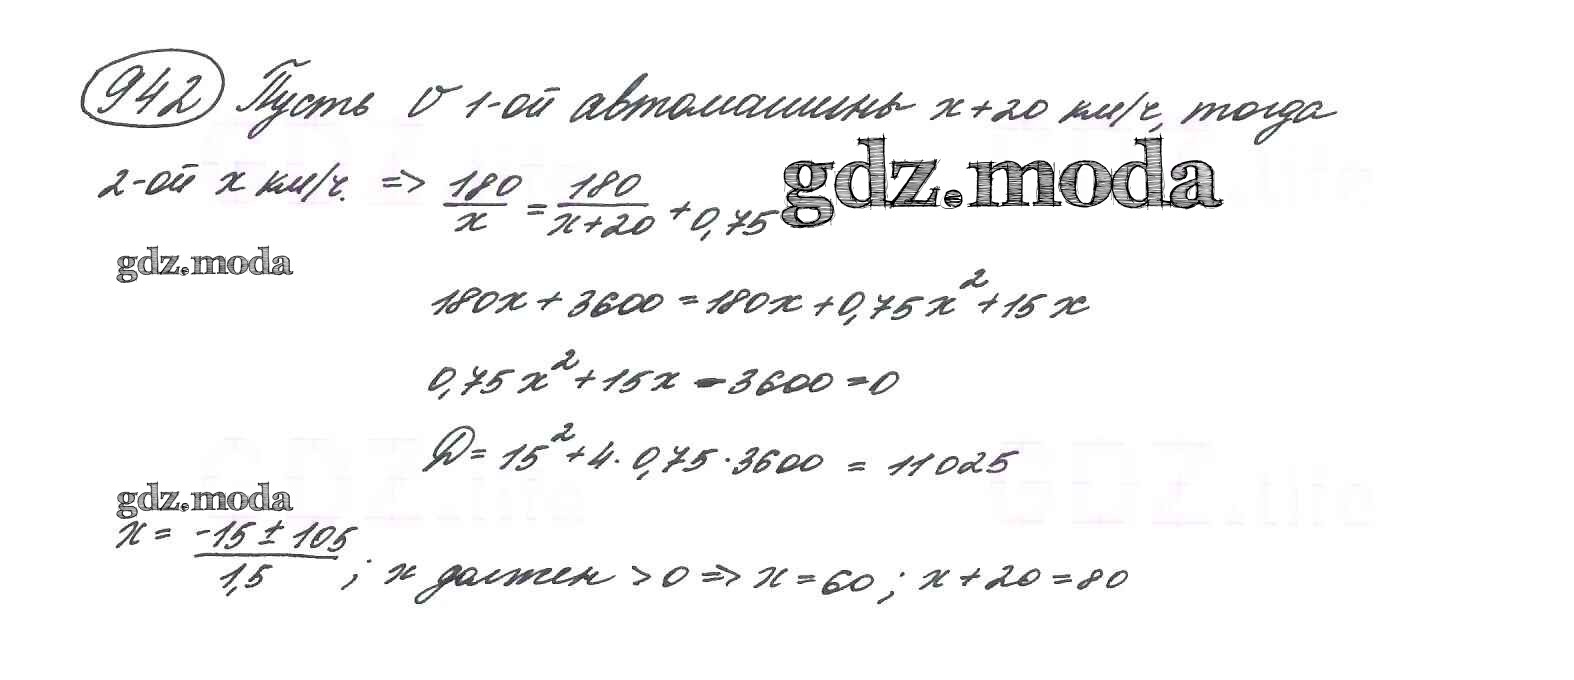 942 Пусть v 1-ой автомашины x+20 км/ч, тогда
2-ой x км/ч. => 180/x = 180/(x+20) + 0,75
gdz.moda
gdz.moda
180x + 3600 = 180x + 0,75x² + 15x
0,75x² + 15x - 3600 = 0
D = 15² + 4 · 0,75 · 3600 = 11025
gdz.moda
x = (-15 ± 105)/1,5 ; x должен > 0 => x = 60 ; x + 20 = 80